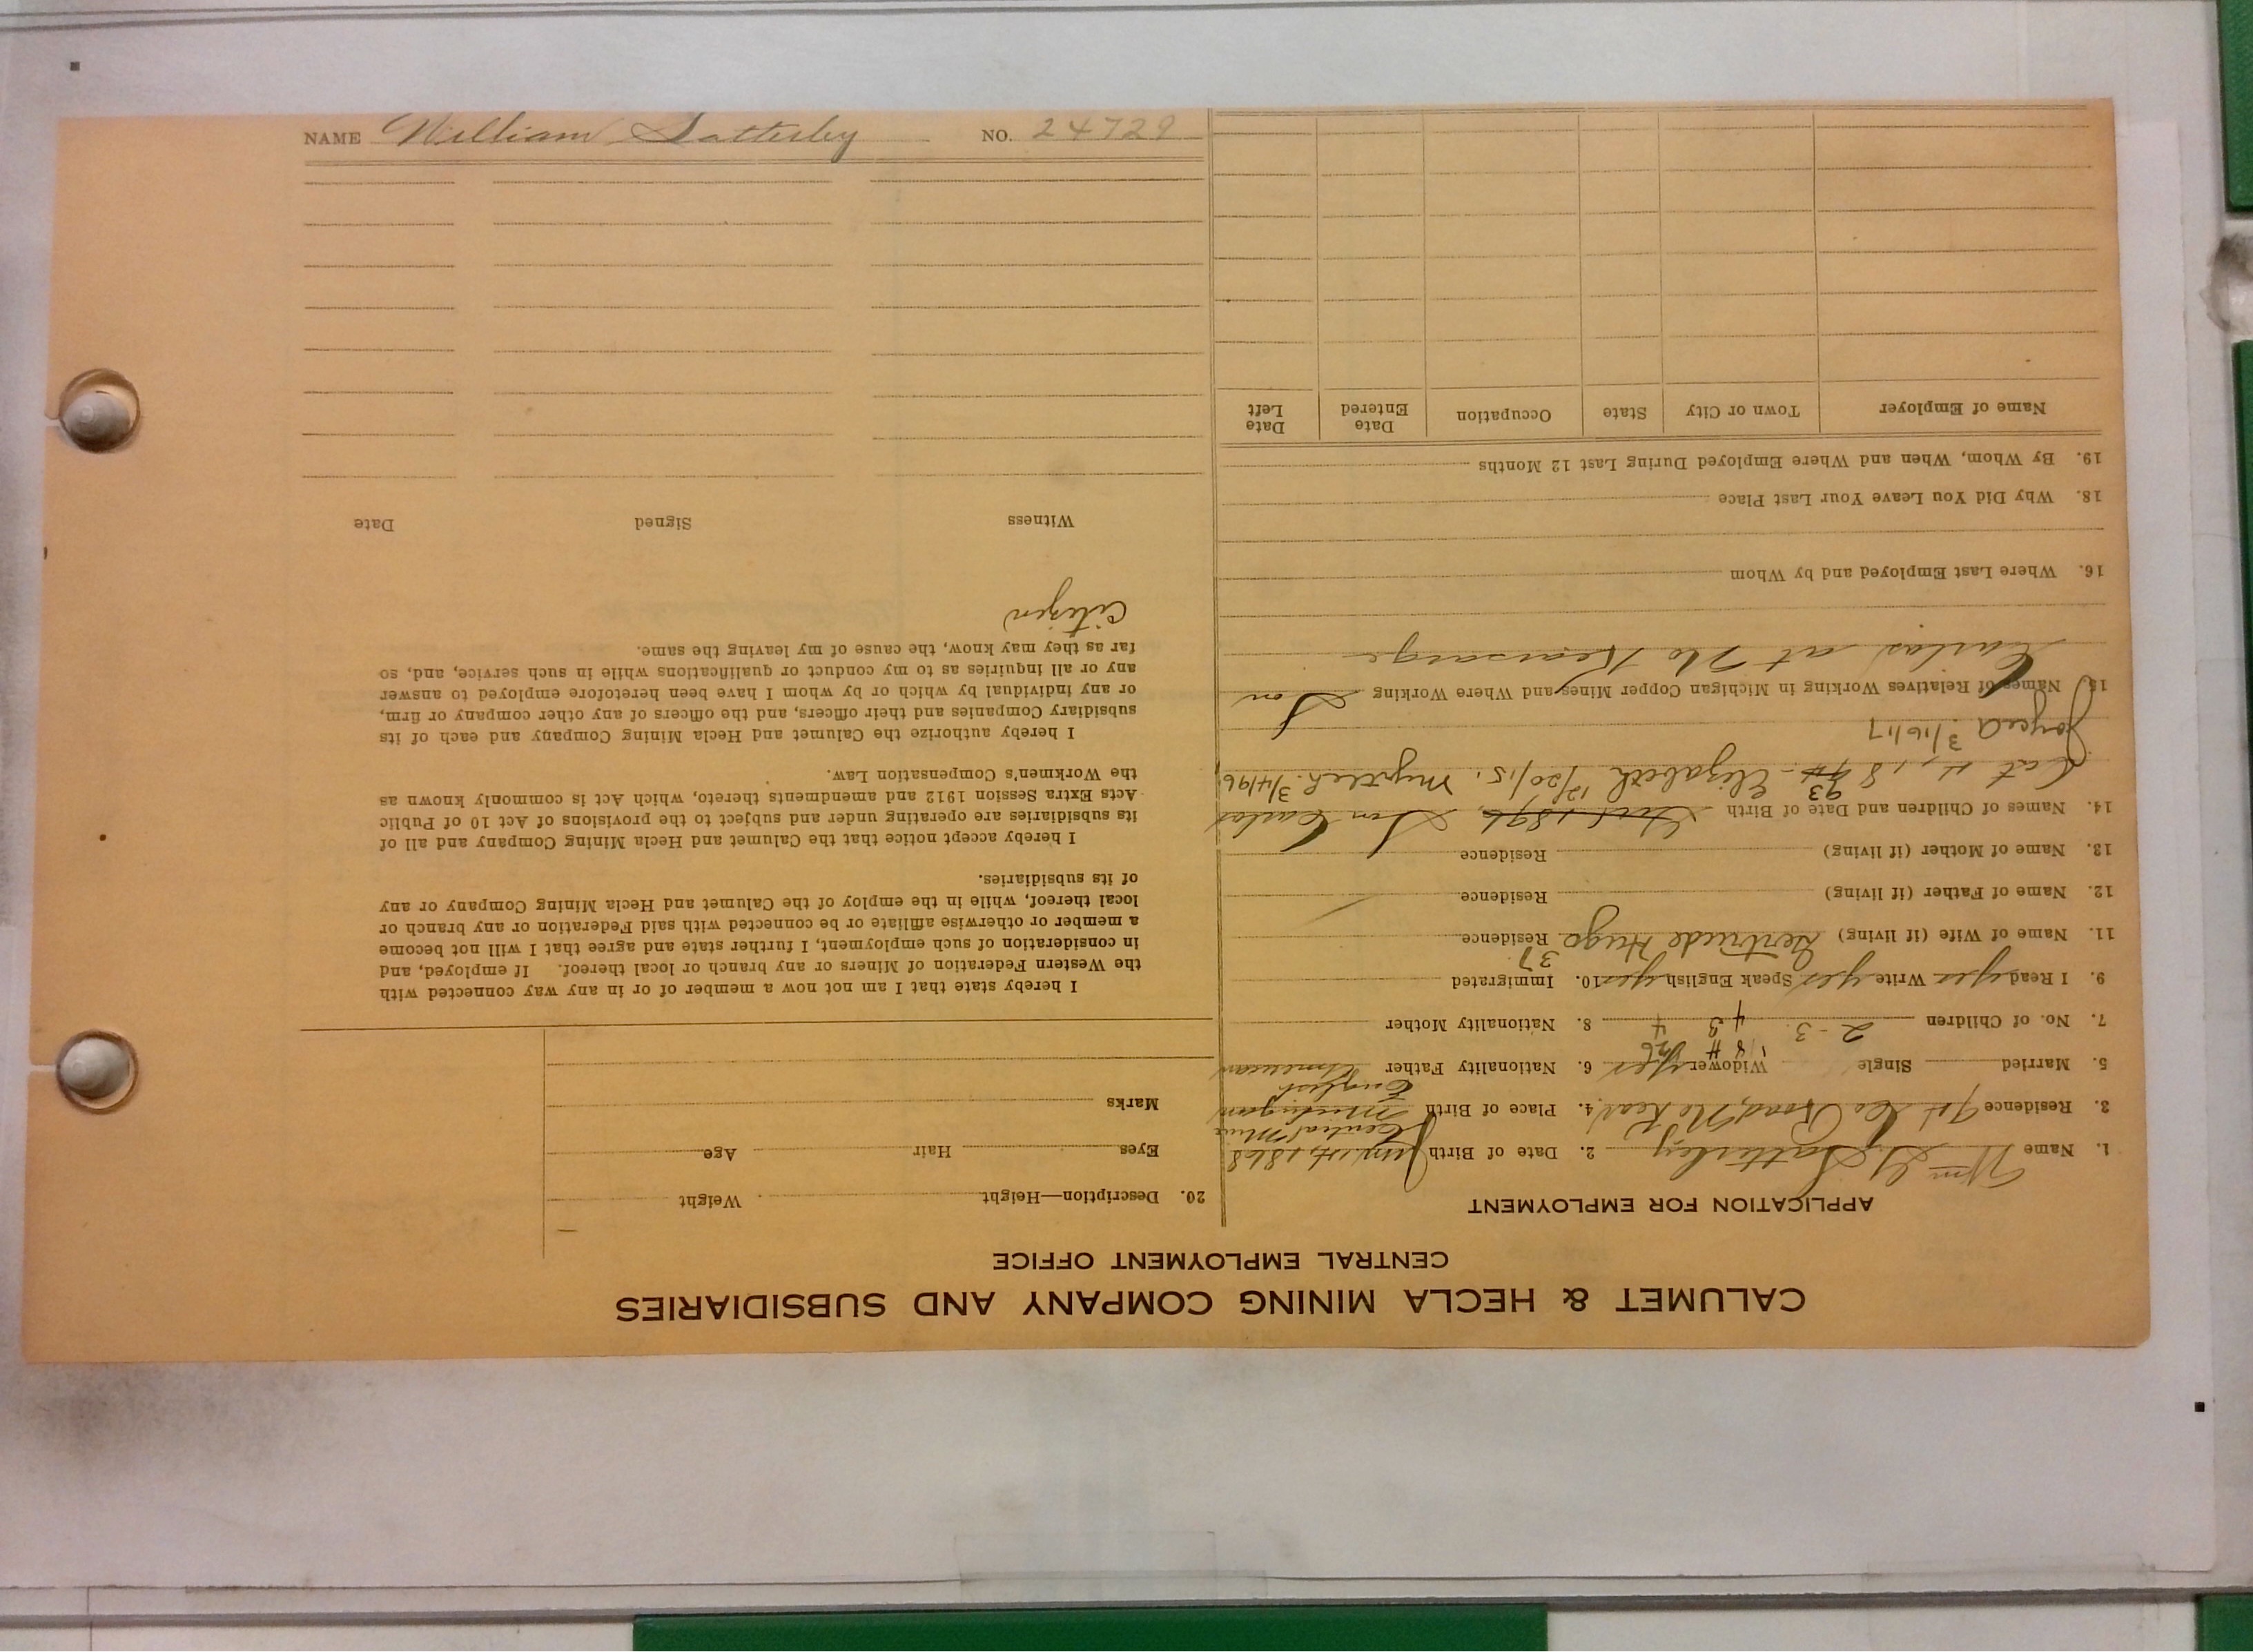 CALUMET & HECLA MINING COMPANY AND SUBSIDIARIES
CENTRAL EMPLOYMENT OFFICE
APPLICATION FOR EMPLOYMENT
1. Name Wm Satterley 2. Date of Birth 1868
Central Mine
3. Residence Road, No Kear. 4. Place of Birth Michigan
English
5. Married Single Widower yes 6. Nationality Father American
7. No. of Children 2-3 4 3 4 8. Nationality Mother
9. I Read yes Write yes Speak English yes 10. Immigrated
37
11. Name of Wife (if living) Gertrude Hugo Residence
12. Name of Father (if living) Residence
13. Name of Mother (if living) Residence
14. Names of Children and Date of Birth 1896 Son Carlos
93
Elizabeth 12/20/15. Myrtle R. 3/4/96
Joyce A 3/16/17
15. Names of Relatives Working in Michigan Copper Mines and Where Working Son
Carlos at No Kearsarge
16. Where Last Employed and by Whom
18. Why Did You Leave Your Last Place
19. By Whom, When and Where Employed During Last 12 Months
Name of Employer Town or City State Occupation Date Entered Date Left
20. Description—Height Weight
Eyes Hair Age
Marks
I hereby state that I am not now a member of or in any way connected with
the Western Federation of Miners or any branch or local thereof. If employed, and
in consideration of such employment, I further state and agree that I will not become
a member or otherwise affiliate or be connected with said Federation or any branch or
local thereof, while in the employ of the Calumet and Hecla Mining Company or any
of its subsidiaries.
I hereby accept notice that the Calumet and Hecla Mining Company and all of
its subsidiaries are operating under and subject to the provisions of Act 10 of Public
Acts Extra Session 1912 and amendments thereto, which Act is commonly known as
the Workmen's Compensation Law.
I hereby authorize the Calumet and Hecla Mining Company and each of its
subsidiary Companies and their officers, and the officers of any other company or firm,
or any individual by which or by whom I have been heretofore employed to answer
any or all inquiries as to my conduct or qualifications while in such service, and, so
far as they may know, the cause of my leaving the same.
Citizen
Witness Signed Date
NAME William Satterley NO. 24729